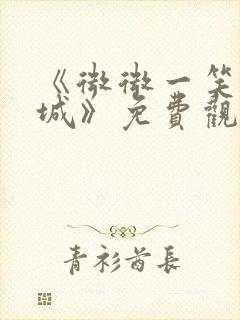 《微微一笑
城》免費觀
青衫酋長